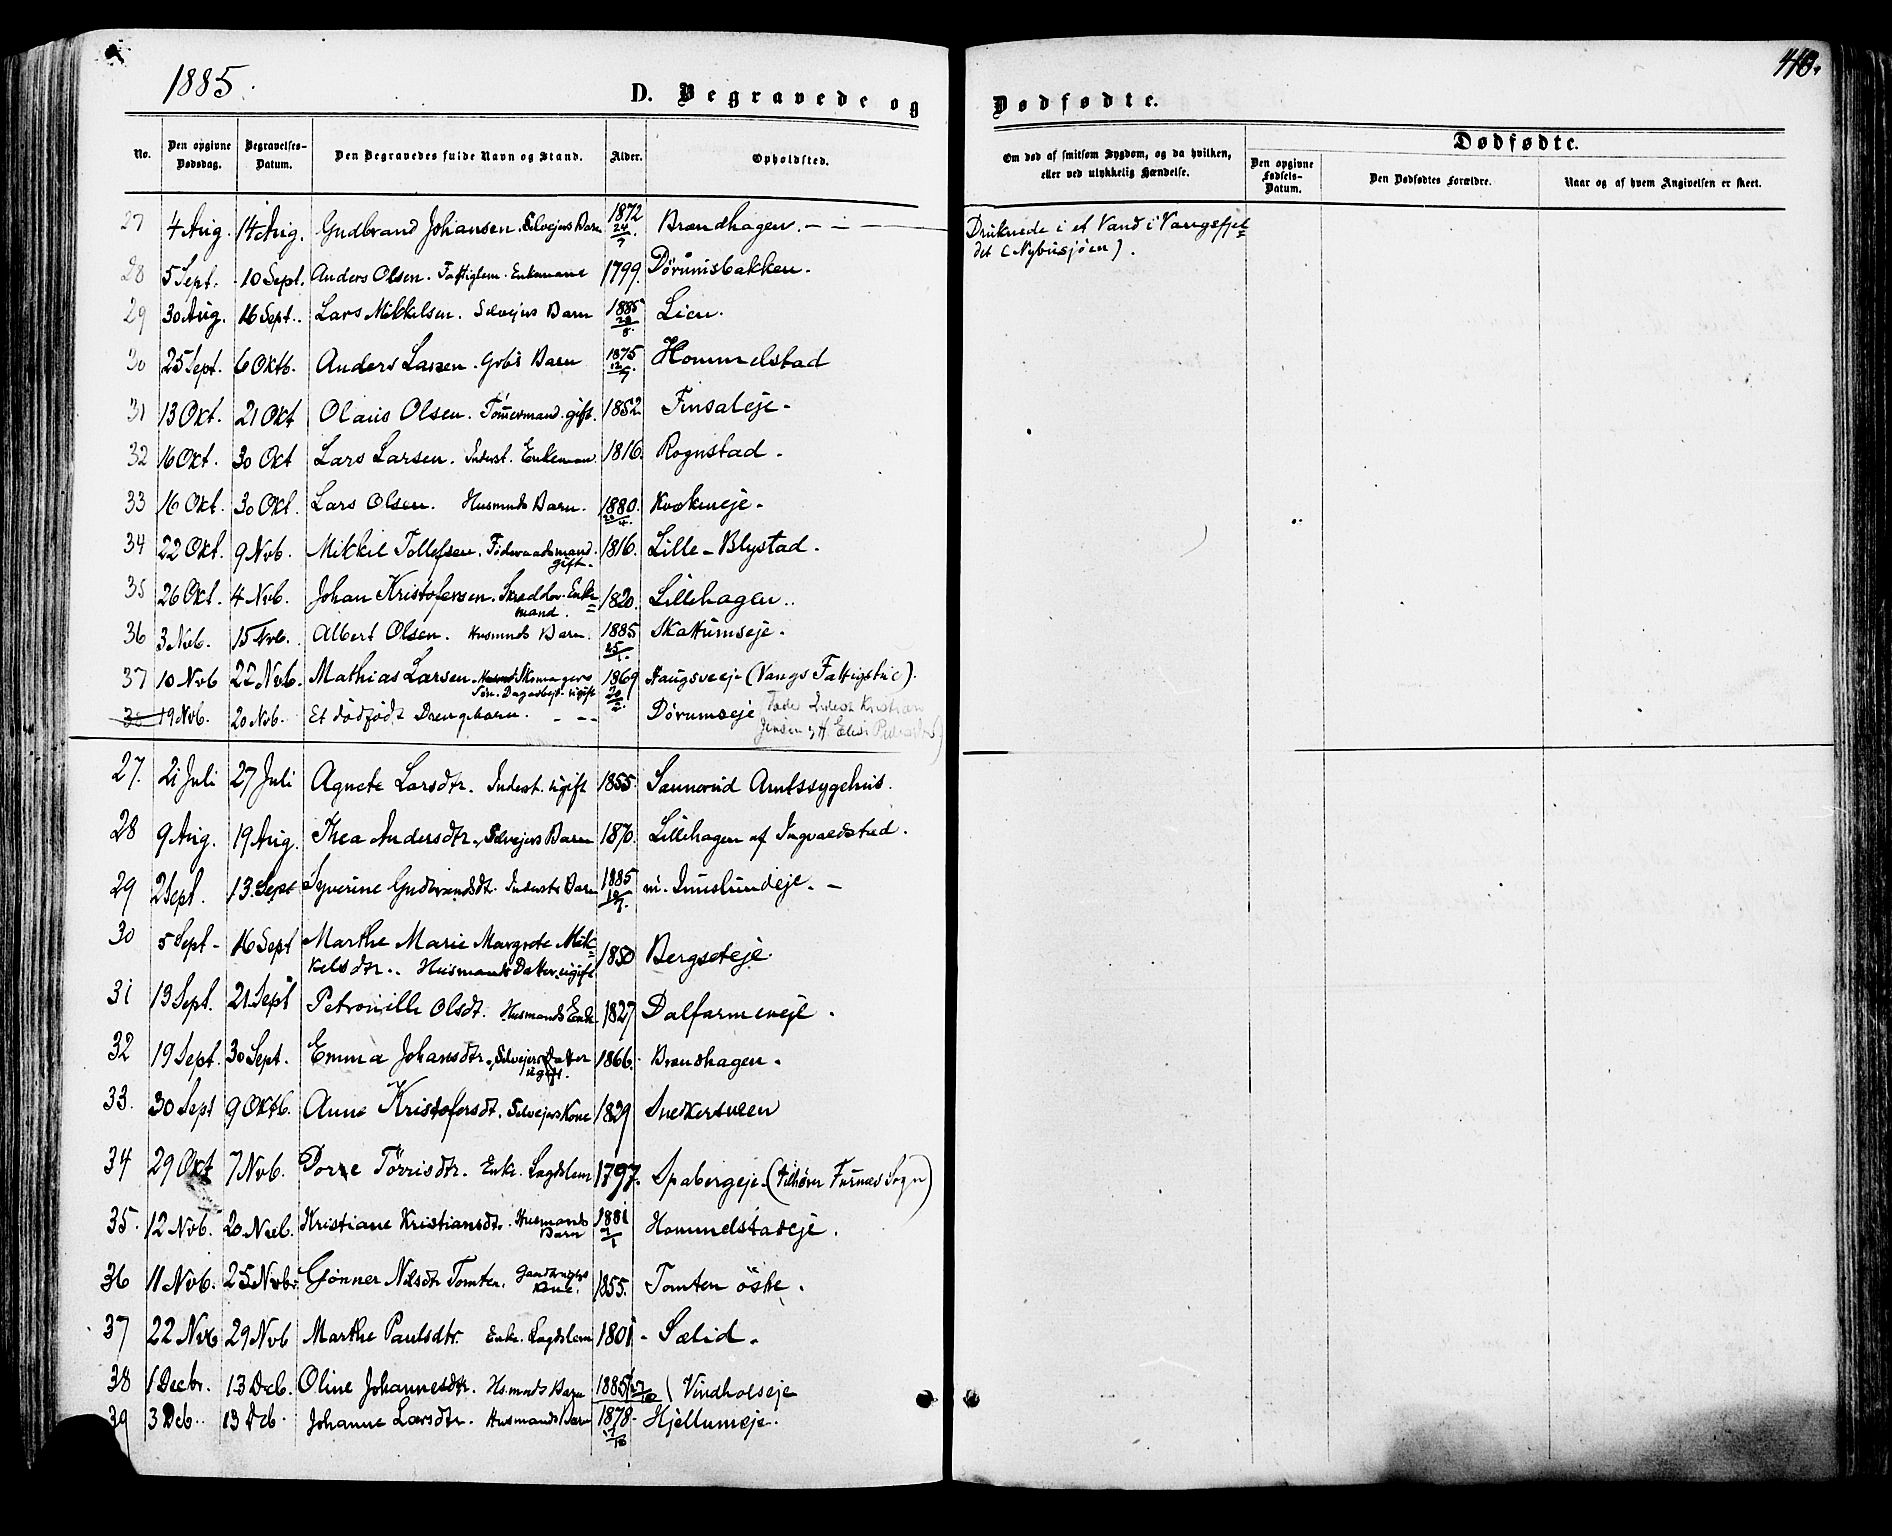 1885.
D. Begravede og
Dødfødte.
410.
No.
Den opgivne Dødsdag.
Begravelses-Datum.
Den Begravedes fulde Navn og Stand.
Alder.
Opholdsted.
Om død af smitsom Sygdom, og da hvilken, eller ved ulykkelig Hændelse.
Dødfødte.
Den opgivne Fødsels-Datum.
Den Dødfødtes Forældre.
Naar og af hvem Angivelsen er skeet.
27 4 Aug. 14 Aug. Gudbrand Johansen. Selvejers Barn 1872 24/7. Brændhagen. - - Druknede i et Vand i Vangsfjel=
det (Nybusjøen).
28 5 Sept. 10 Sept. Anders Olsen. Fattiglem. Enkemand 1799. Dørumsbakken.
29 30 Aug. 16 Sept. Lars Mikkelsen. Selvejers Barn 1885 Lien.
30 25 Sept. 6 Oktb. Anders Larsen. Gbrs Barn 1875 12/7. Hommelstad
31 13 Okt. 21 Okt Olaus Olsen. Tømmermand. gift. 1852 Finsaleje -
32 16 Okt. 30 Okt Lars Larsen. Inderst. Enkeman 1816. Rognstad -
33 16 Okt. 30 Okt. Lars Olsen. Husmnds Barn. 1880. Kvækneje -
34 22 Okt. 9 Nvb. Mikkel Tollefsen. Føderaadsmand. 1816. Lille-Blystad.
gift-
35 26 Okt. 4 Nvb. Johan Kristofersen. Skrædder. Enke= 1820. Lillehagen..
mand.
36 3 Nvb. 15 Nvb. Albert Olsen. Husmnds Barn. 1885 25/1. Skattumseje.
37 10 Nvb 22 Nvb. Mathias Larsen. Skomagers 1869 Haugsveeje (Vangs Fattigdistric).
Søn. Dagarbejd. ugift
38 19 Nvb. 20 Nvb. Et dødfødt Drengebarn. - -- Dørumseje (Fader Inderst Kristian
Jensen og H. Elise Pedersdtr)
27. 21 Juli 27 Juli Agnete Larsdtr. Inderst. ugift 1855. Sannerud Amtssygehus.
28 9 Aug. 19 Aug. Thea Andersdtr. Selvejers Barn 1870. Lillehagen af Ingvaldstad.
29 2 Sept. 13. Sept Syverine Gudbrandsdtr. Inderst Barn 1885 m. Imislundeje. -
30 5 Sept - 16 Sept Marthe Marie Margrete Mik=
kelsdtr.. Husmands Datter. ugift 1850 Bergseteje
31 13 Sept. 21. Sept Petronille Olsdt. Husmands Enke 1827 Dalfarmeneje.
32 19 Sept. 30 Sept. Emma Johansdtr. Selvejers Datter 1866. Brændhagen.
ugift.
33. 30 Sept 9 Oktb. Anne Kristofersdt. Selvejers Kone 1829 Snekersveen
34 29 Okt 7 Nvb. Dorte Tørrisdtr. Enke. Lægdslem 1797. Spabergeje. (tilhører Furnæs Sogn)
35. 12 Nvb. 20 Nvb. Kristiane Kristiansdtr. Husmands 1881 7/1 Hommelstadeje.
Barn
36 11 Nvb. 25 Nvbr. Gønner Nilsdtr Tomten. Gaardbrugers 1855. Tomten østre.
Kone.
37 22 Nvb 29 Nvb Marthe Paulsdtr. Enke. Lægdslem 1801 - Sælid.
38 1 Decbr. 13 Dcb. Oline Johannesdtr. Hsmnds Barn 1885 27/10 Vindholseje
39 3 Dcb. 13 Dcb. Johanne Larsdtr. Husmands Barn 1878. 7/10 Hjellumeje.